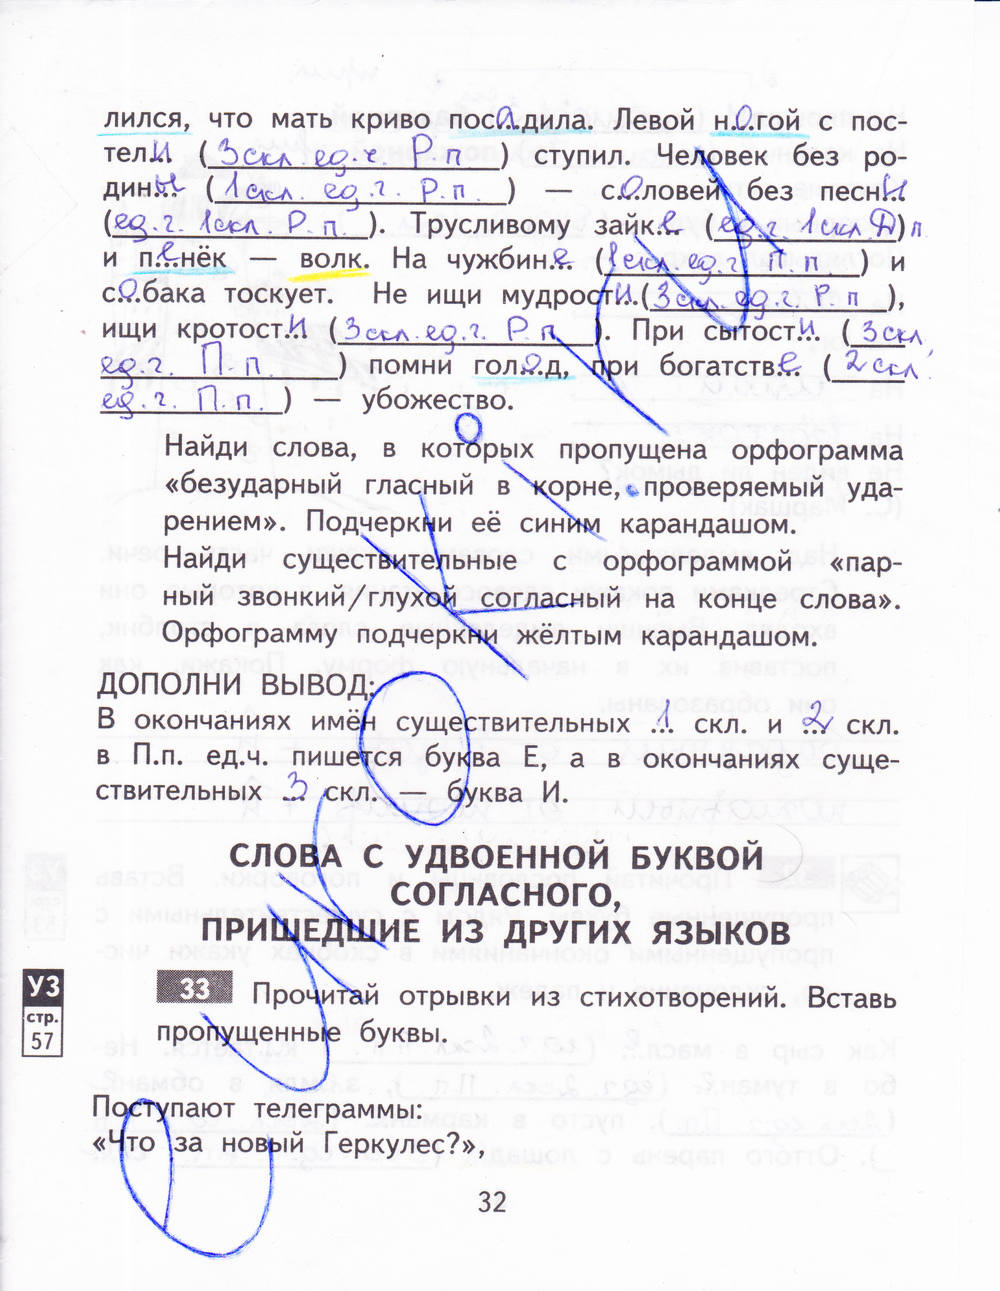 лился, что мать криво посадила. Левой ногой с пос-
тели (3 скл. ед. ч. Р. п.) ступил. Человек без ро-
дины (1 скл. ед. ч. Р. п.) — соловей без песни
(ед. ч. 1 скл. Р. п.). Трусливому зайке (ед. ч. 1 скл Д) п.
и пенёк — волк. На чужбине (1 скл. ед. ч. П. п) и
собака тоскует. Не ищи мудрости (3 скл. ед. ч. Р. п),
ищи кротости (3 скл. ед. ч. Р. п.). При сытости (3 скл,
ед. ч. П. п.) помни голод, при богатстве (2 скл.
ед. ч. П. п.) — убожество.
Найди слова, в которых пропущена орфограмма
«безударный гласный в корне, проверяемый уда-
рением». Подчеркни её синим карандашом.
Найди существительные с орфограммой «пар-
ный звонкий/глухой согласный на конце слова».
Орфограмму подчеркни жёлтым карандашом.
ДОПОЛНИ ВЫВОД:
В окончаниях имён существительных 1 скл. и 2 скл.
в П.п. ед.ч. пишется буква Е, а в окончаниях суще-
ствительных 3 скл. — буква И.
СЛОВА С УДВОЕННОЙ БУКВОЙ
СОГЛАСНОГО,
ПРИШЕДШИЕ ИЗ ДРУГИХ ЯЗЫКОВ
УЗ
стр.
57
33 Прочитай отрывки из стихотворений. Вставь
пропущенные буквы.
Поступают телеграммы:
«Что за новый Геркулес?»,
32